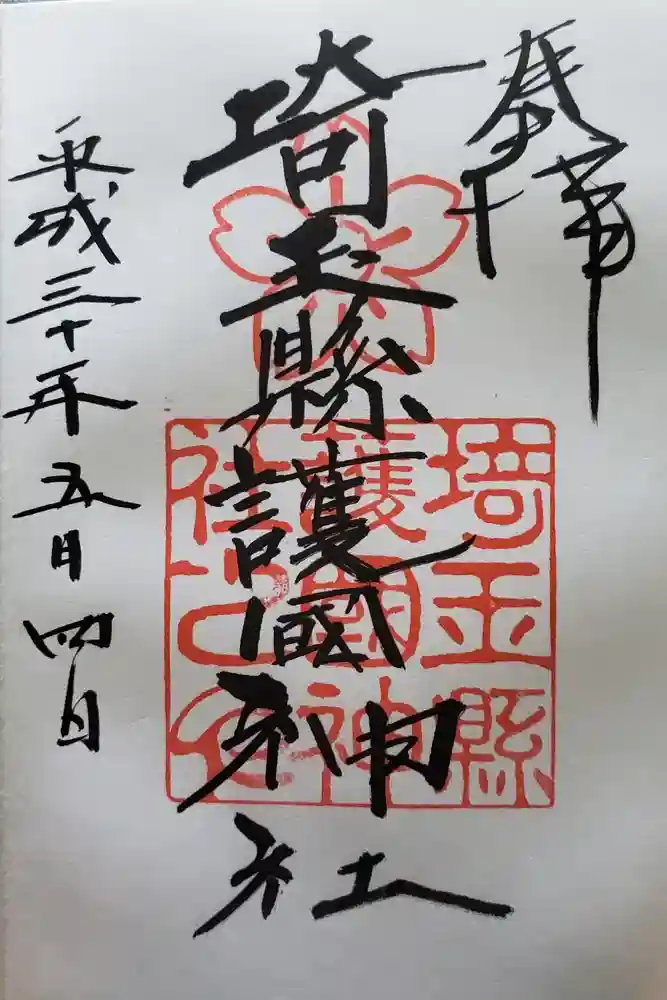 奉拝
埼玉縣護國神社
平成三十年五月四日
埼玉縣
護國神
社之印